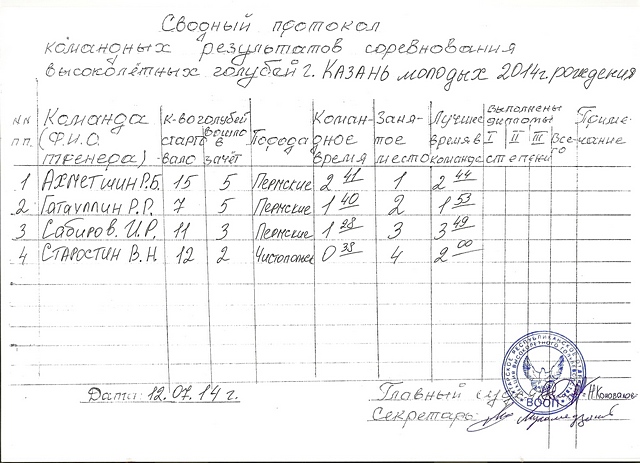 Сводный протокол
командных результатов соревнования
высоколётных голубей г. КАЗАНЬ молодых 2014г. рождения
NN п.п. Команда (Ф.И.О. тренера) к-во голубей стартовало вошло в зачёт Порода Командное время Занятое место Лучшее время в команде Выполнены дипломы I II III степени Всего Примечание
1 Ахметшин Р.Б. 15 5 Пермские 2 41 1 2 44
2 Гатауллин Р.Р. 7 5 Пермские 1 40 2 1 53
3 Сабиров. И.Р. 11 3 Пермские 1 28 3 3 49
4 Старостин В.Н 12 2 0 38 4 2 00
Дата: 12.07.14 г.
Главный Н.Коновалов
Секретарь:
ВООП